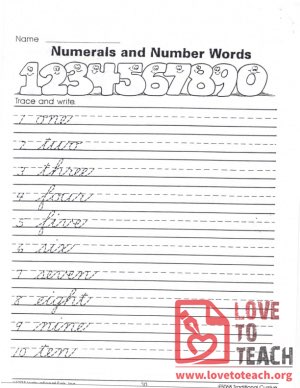 Name
Numerals and Number Words
1234567890
Trace and write.
1 one
2 two
3 three
4 four
5 five
6 six
7 seven
8 eight
9 nine
10 ten
LOVE
TO
TEACH
www.lovetoteach.org